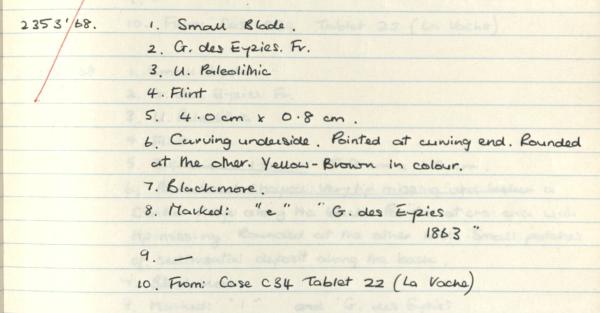 2353'68. 1. Small Blade.
2. G. des Eyzies. Fr.
3. U. Paleolithic
4. Flint
5. 4.0cm x 0.8 cm.
6. Curving underside. Pointed at curving end. Rounded
at the other. Yellow-Brown in colour.
7. Blackmore.
8. Marked: "e" "G. des Eyzies
1863"
9. —
10. From: Case C34 Tablet 22 (La Vache)